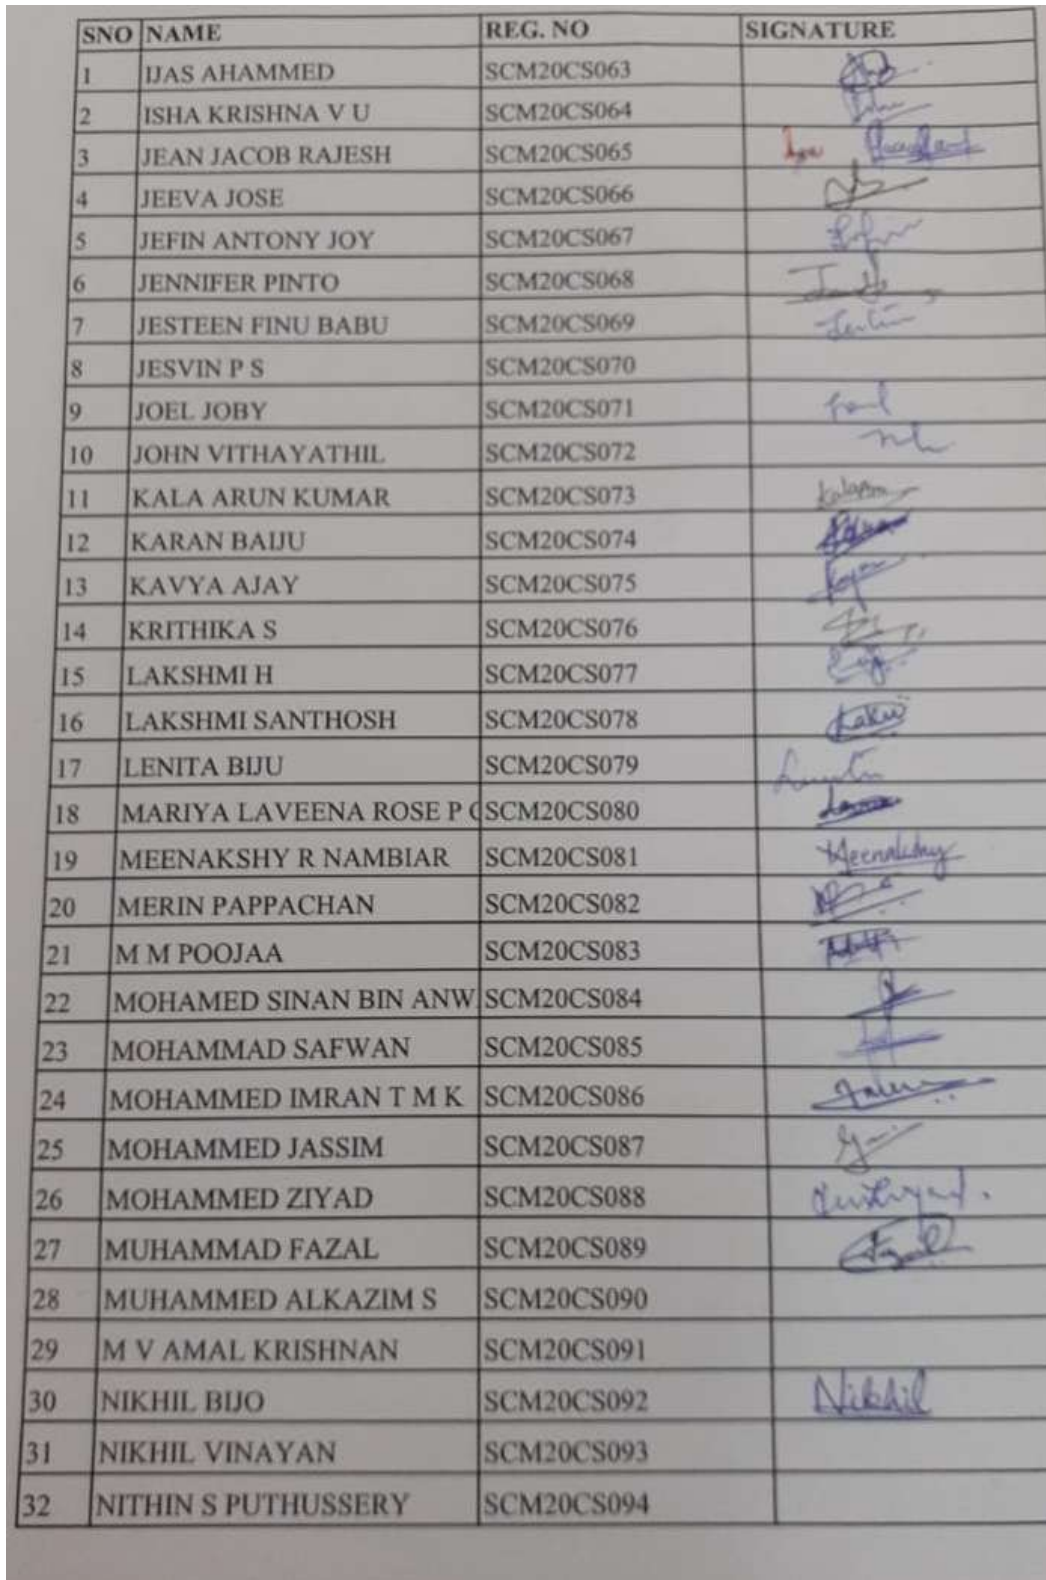 SNO NAME REG. NO SIGNATURE
1 IJAS AHAMMED SCM20CS063
2 ISHA KRISHNA V U SCM20CS064
3 JEAN JACOB RAJESH SCM20CS065
4 JEEVA JOSE SCM20CS066
5 JEFIN ANTONY JOY SCM20CS067
6 JENNIFER PINTO SCM20CS068
7 JESTEEN FINU BABU SCM20CS069
8 JESVIN P S SCM20CS070
9 JOEL JOBY SCM20CS071
10 JOHN VITHAYATHIL SCM20CS072
11 KALA ARUN KUMAR SCM20CS073
12 KARAN BAIJU SCM20CS074
13 KAVYA AJAY SCM20CS075
14 KRITHIKA S SCM20CS076
15 LAKSHMI H SCM20CS077
16 LAKSHMI SANTHOSH SCM20CS078
17 LENITA BIJU SCM20CS079
18 MARIYA LAVEENA ROSE P SCM20CS080
19 MEENAKSHY R NAMBIAR SCM20CS081 Meenakshy
20 MERIN PAPPACHAN SCM20CS082
21 M M POOJAA SCM20CS083
22 MOHAMED SINAN BIN ANW SCM20CS084
23 MOHAMMAD SAFWAN SCM20CS085
24 MOHAMMED IMRAN T M K SCM20CS086
25 MOHAMMED JASSIM SCM20CS087
26 MOHAMMED ZIYAD SCM20CS088
27 MUHAMMAD FAZAL SCM20CS089
28 MUHAMMED ALKAZIM S SCM20CS090
29 M V AMAL KRISHNAN SCM20CS091
30 NIKHIL BIJO SCM20CS092 Nikhil
31 NIKHIL VINAYAN SCM20CS093
32 NITHIN S PUTHUSSERY SCM20CS094